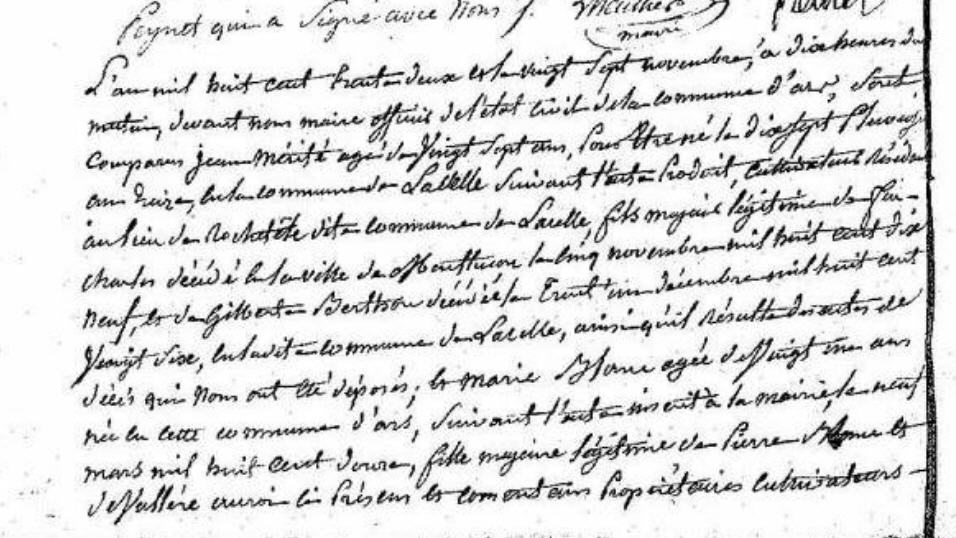 Peynet qui a signé avec nous /.
maire
L'an mil huit cent trente deux et le vingt sept novembre, à dix heures du
matin, devant nous maire officier de l'état civil de la commune d'ars, sont
comparus jean Mérité agé de Vingt sept ans, pour être né le dix sept Pluviose
an treize, en la commune de Lacelle suivant l'acte Produit, cultivateur résidant
au lieu de dite commune de Lacelle, fils majeur légitime de feu
charles décédé en la ville de Montluçon le cinq novembre mil huit cent dix
neuf, et de Gilberte Berthon décédée le Trente un décembre mil huit cent
Vingt six, en la dite commune de Lacelle, ainsi qu'il résulte des actes de
décès qui nous ont été déposés; et marie agée de Vingt un ans
née en cette commune d'ars, suivant l'acte inscrit à la mairie, le neuf
mars mil huit cent douze, fille majeure légitime de Pierre et
de Vallère ci Présens et consentans Propriétaires cultivateurs